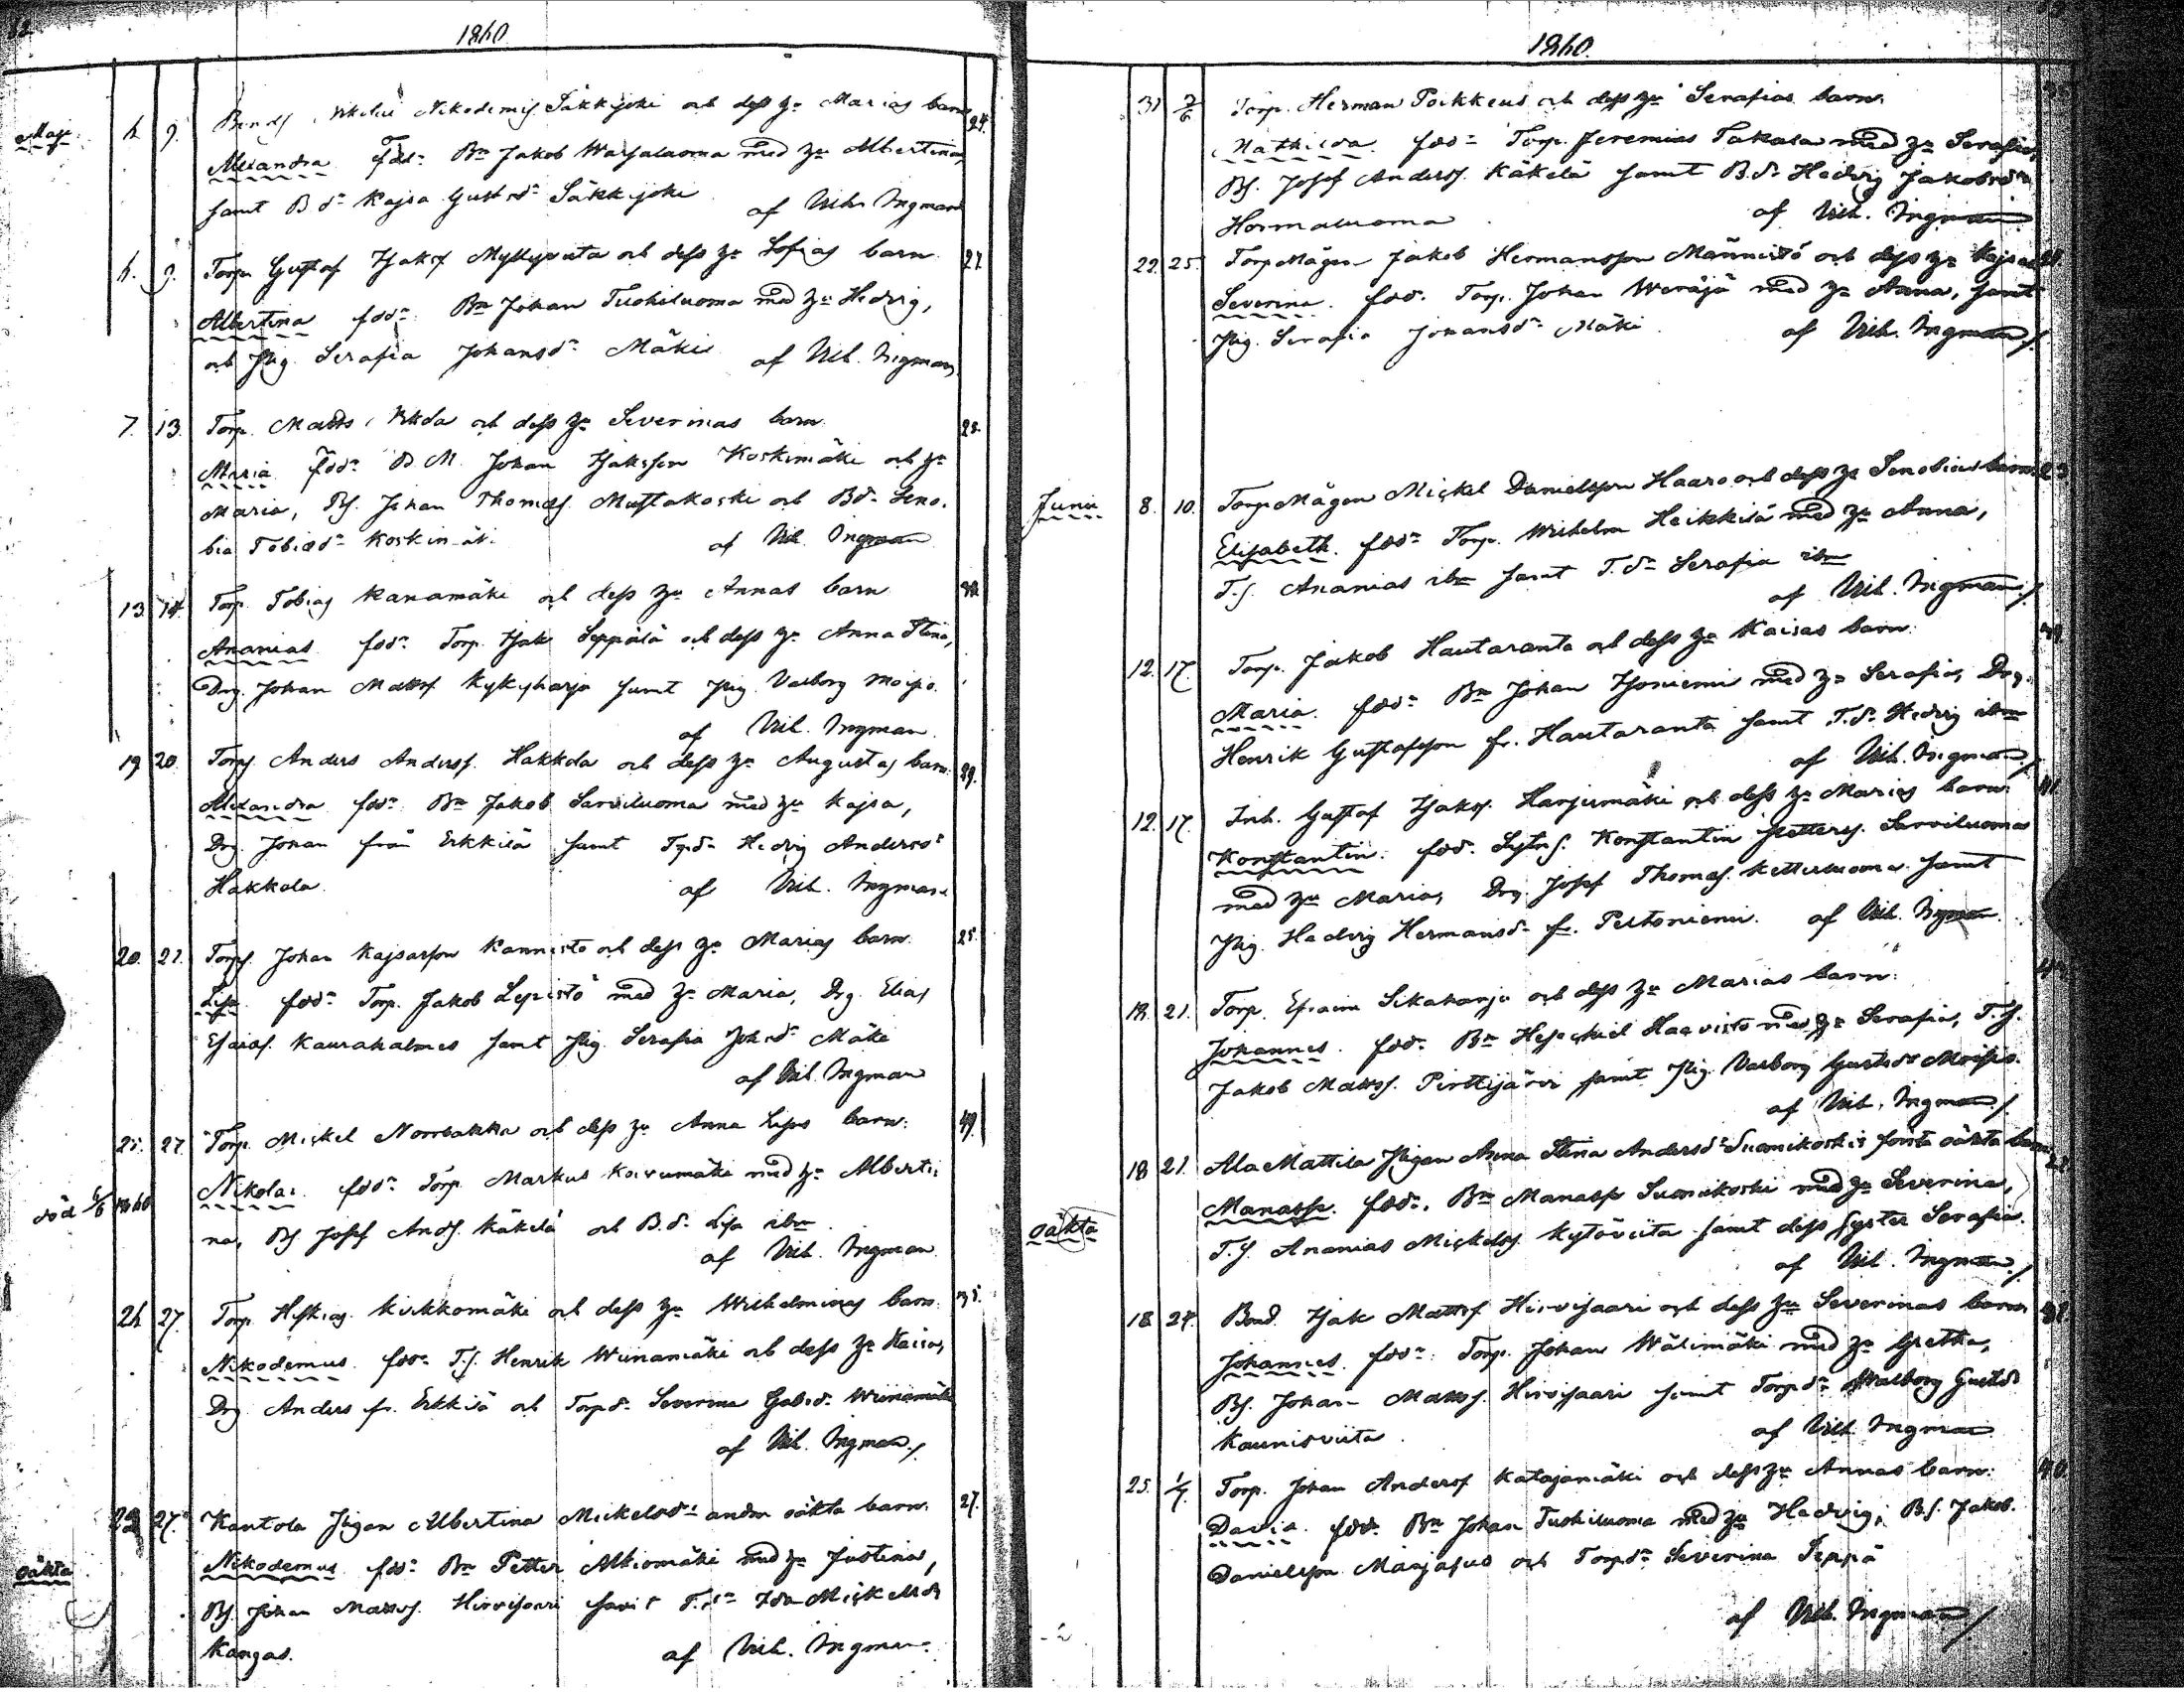 1860.
Maji
4. 9. Nikodemij. Säkkijoki och dess h:u Marias barn 24.
Alexandra fadd:r Bn Jakob Warsaluoma med h:u Albertina,
samt B.d:r Kajsa Gust.d:r Säkkijoki af Vilh. Ingman
4. 9. Torp. Gustaf Isaksf. Myllyviita och dess h:u Sofias barn 27.
Albertina fadd:r Bn Johan Tuohiluoma med h:u Hedvig,
och Pig. Serafia Johansd:r Mäki af Vilh. Ingman
7. 13. Torp. Matts och dess h:u Severinas barn 28.
Maria fadd:r B.M. Johan Isaksson Koskimäki och h:u
Maria, Bs. Johan Thomass. Mustakoski och B.d:r Seno-
bia Tobiasd:r af Vilh. Ingman
13 14 Torp. Tobias Kanamäki och dess h:u Annas barn
Ananias fadd:r Torp. Isak Seppälä och dess h:u Anna Stina,
Drg. Johan Mattsf. Kykyharju samt Pig. Valborg Moisio.
af Vilh. Ingman.
19 20 Torps. Anders Anderss. Hakkola och dess h:u Augustas barn 29.
Alexandra fadd:r Bn Jakob Sarviluoma med h:u Kajsa,
Drg. Johan från Erkkilä samt Tp.d:r Hedvig Andersd:r
Hakkola. af Vilh. Ingman
20. 21. Torps. Johan Kajsasson Kannisto och dess h:u Marias barn 25.
Lisa fadd:r Torp. Jakob Lepistö med h:u Maria, Drg. Elias
Esaias. Kauraholmes samt Pig. Serafia Joh.d:r Mäki
af Vilh. Ingman
25. 27. Torp. Mickel Norrbakka och dess h:u Anna Lisas barn. 49.
död 6/6 1860
Nikolai fadd:r Torp. Markus Koivumäki med h:u Alberti-
na, Bs. Josef Ands. Käkelä och B.d:r Lisa ibm
af Vilh. Ingman
24 27. Torp. Heskias Kukkomäki och dess h:u Wilhelminas barn. 35.
Nikodemus fadd:r T.s. Henrik Wiinamäki och dess h:u Kaisa,
Drg. Anders fr. Erkkilä och Torp.d:r Severina Gabr.d:r Wiinamäki
af Vilh. Ingman./
22 27. Kantola Pigan Albertina Mickelsd:r andra oäkta barn. 27.
oäkta
Nikodemus fadd:r Bn Petter Alkiomäki med h:u Justina,
Bs. Johan Mattss. Hirvisaari samt T.d:r Ida Mickelsd:r
Kangas. af Vilh. Ingman
1860.
31 2/6 Torp. Herman Poikkeus och dess h:u Serafias barn
Mathilda fadd:r Torp. Jeremias Takala med h:u Serafia,
Bs. Josef Anderss. Käkelä samt B.d:r Hedvig Jakobsd:r
Hormaluoma af Vilh. Ingman
22. 25. Torp.Mågen Jakob Hermansson Männistö och dess h:u Kajsas
Severina fadd:r Torp. Johan Weräjä med h:u Anna, samt
Pig. Serafia Johansd:r Mäki af Vilh. Ingman/.
Junii 8. 10. Torp.Mågen Mickel Danielsson Haaro och dess h:u Senobias barn 23
Elisabeth. fadd:r Torp. Wilhelm Heikkilä med h:u Anna,
T.s. Ananias ibm samt T.d:r Serafia ibm
af Vilh. Ingman./.
12. 17. Torp. Jakob Hautaranta och dess h:u Kaisas barn:
Maria. fadd:r Bn Johan Isoniemi med h:u Serafia, Drg.
Henrik Gustafsson fr. Hautaranta samt T.d:r Hedvig ibm
af Vilh. Ingman/.
12. 17. Inh. Gustaf Isakss. Harjumäki och dess h:u Marias barn: 41.
Konstantin. fadd. Sytn.s. Konstantin Petters. Sarviluoma
med h:u Maria, Drg. Josef Thomas. Ketterluoma samt
Pig. Hedvig Hermansd:r fr. Peltoniemi. af Vilh. Ingman
18. 21. Torp. Efraim Sikaharju och dess h:u Marias barn:
Johannes. fadd:r Bn Hesechiel Haavisto med h:u Serafia, T.s.
Jakob Mattss. Pirttijärvi samt Pig. Valborg Gustsd:r Moisio.
af Vilh. Ingman/.
18 21. Ala Mattila Pigan Anna Stina Andersd:r Suomikoskis första oäkta barn 22
oäkta
Manasse. fadd:r Bn Manasse Suomikoski med h:u Severina,
T.s. Ananias Mickelss. Kytöviita samt dess syster Serafia.
af Vilh. Ingman./
18 24. Bond. Isak Mattsf. Hirvisaari och dess h:u Severinas barn
Johannes. fadd:r Torp. Johan Wälimäki med h:u Gretha,
Bs. Johan Mattss. Hirvisaari samt Torp.d:r Walborg Gustsd:r
Kaunisviita. af Vilh. Ingman
25. 1/7. Torp. Johan Andersf. Katajamäki och dess h:u Annas barn: 40.
David. fadd:r Bn Johan Tuohiluoma med h:u Hedvig, Bs. Jakob
Danielsson Marjasuo och Torp.d:r Severina Seppä
af Vilh. Ingman/